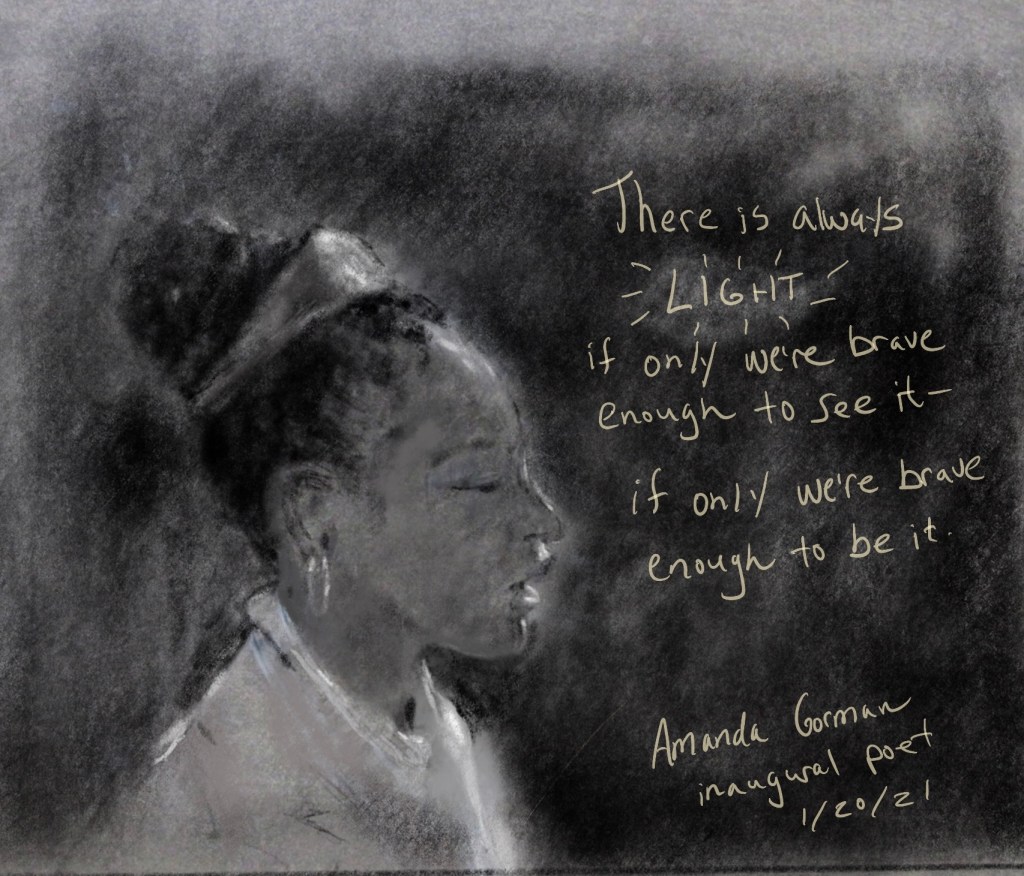 There is always
LIGHT
if only we're brave
enough to see it—
if only we're brave
enough to be it.
Amanda Gorman
inaugural poet
1/20/21